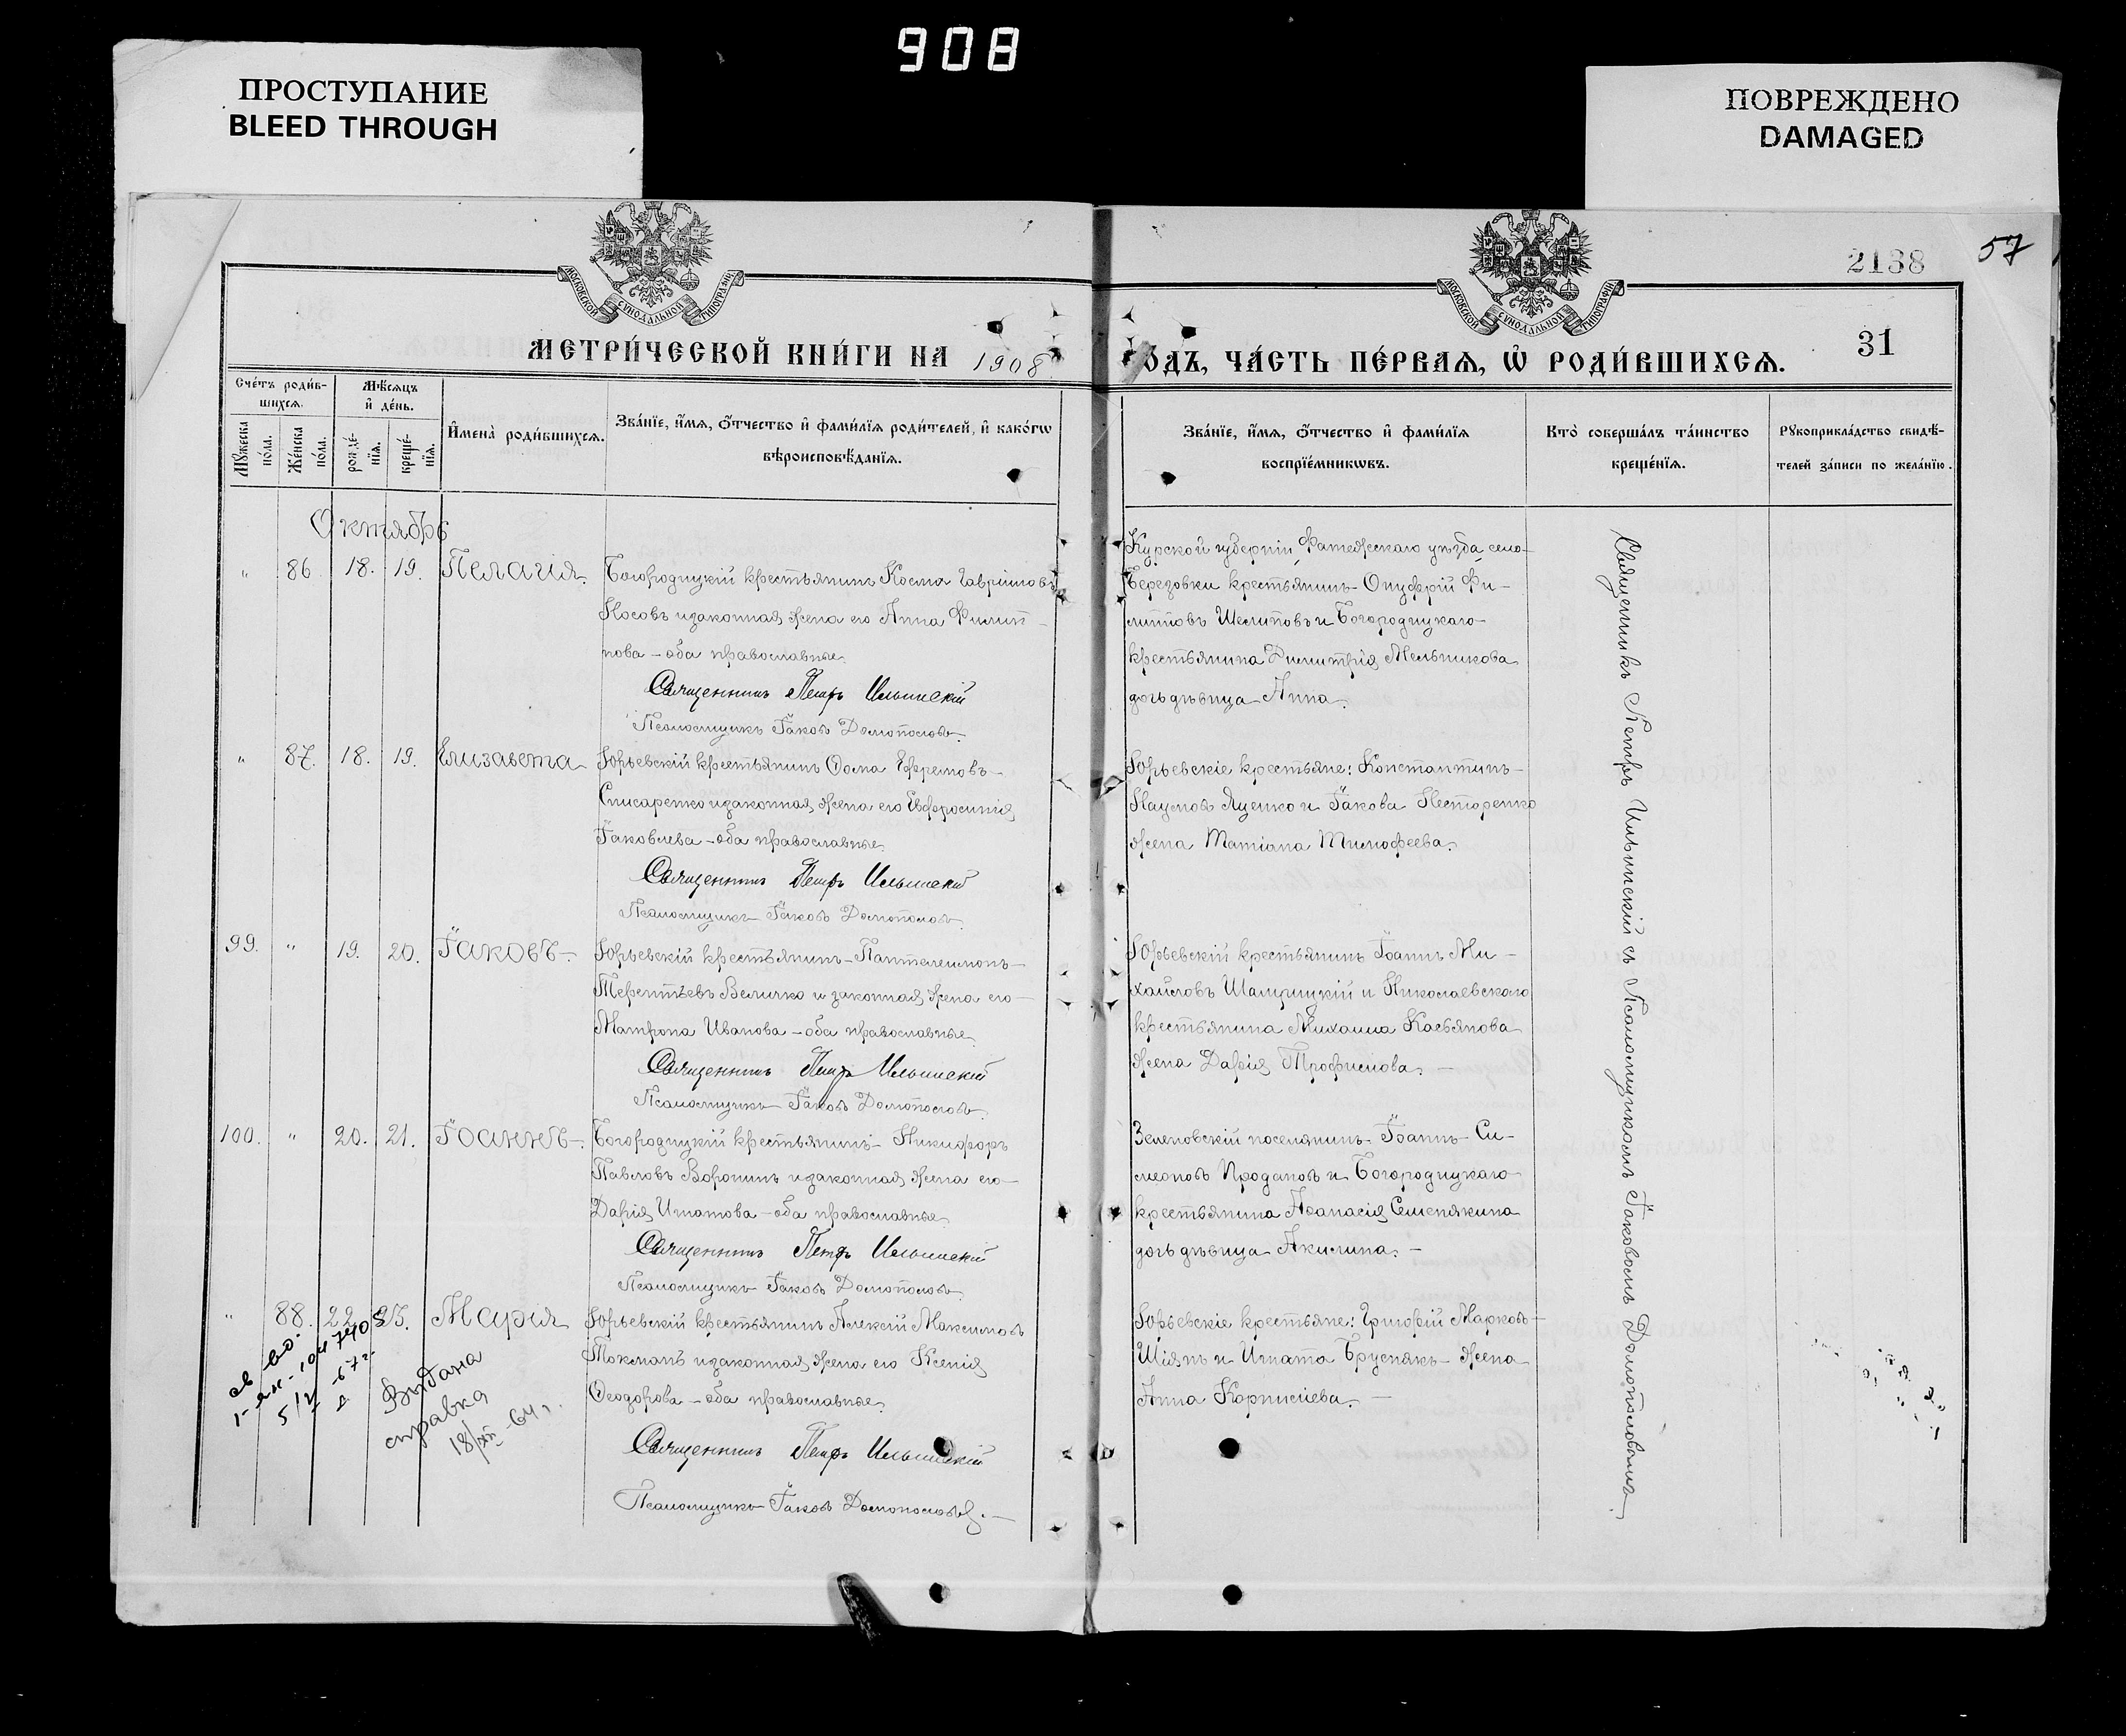 908
ПРОСТУПАНИЕ
BLEED THROUGH
ПОВРЕЖДЕНО
DAMAGED
МОСКОВСКОЙ СУНОДАЛЬНОЙ ТИПОГРАФІИ
МОСКОВСКОЙ СУНОДАЛЬНОЙ ТИПОГРАФІИ
2138
57
31
МЕТРИ́ЧЕСКОЙ КНИ́ГИ НА 1908
ОДЪ, ЧА́СТЬ ПЕ́РВАѦ, Ѡ҆ РОДИ́ВШИХСѦ.
Сче́тъ роди́в-
шихсѧ.
Мꙋ́жеска по́ла.
Же́нска по́ла.
Мѣ́сѧцъ
и҆ де́нь.
рожде́-
нїѧ.
креще́-
нїѧ.
И҆мена̀ роди́вшихсѧ.
Зва́нїе, и҆́мѧ, ѻ҆́тчество и҆ фами́лїѧ роди́телей, и҆ како́гѡ
вѣроисповѣ́данїѧ.
Зва́нїе, и҆́мѧ, ѻ҆́тчество и҆ фами́лїѧ
воспрїе́мникѡвъ.
Кто̀ соверша́лъ та́инство
креще́нїѧ.
Рꙋкоприкла́дство свидѣ́-
телей за́писи по жела́нїю.
Октябрь
„ 86 18. 19. Пелагія.
Богородицкій крестьянинъ Косма Гавріиловъ
Носовъ и законная жена его Анна Филип-
пова – оба православные.
Священникъ Петръ Ильинскій
Псаломщикъ Іаковъ Домополовъ.
Курской губерніи Фатежскаго уѣзда село-
Березовки крестьянинъ Онуфрій Фи-
липповъ Шелиповъ и Богородицкаго
крестьянина Димитрія Мельникова
дочь дѣвица Анна.
„ 87. 18. 19. Елизавета
Юрьевскій крестьянинъ Ѳома Ефремовъ
Слисаренко и законная жена его Евфросинія
Іаковлева – оба православные.
Священникъ Петръ Ильинскій
Псаломщикъ Іаковъ Домополовъ.
Юрьевскіе крестьяне: Константинъ
Наумовъ Яценко и Іакова Нестеренко
жена Татіана Тимофеева.
99. „ 19. 20. Іаковъ.
Юрьевскій крестьянинъ Пантелеимонъ
Терентьевъ Величко и законная жена его
Матрона Иванова – оба православные.
Священникъ Петръ Ильинскій
Псаломщикъ Іаковъ Домополовъ.
Юрьевскій крестьянинъ Іоаннъ Ми-
хайловъ и Николаевскаго
крестьянина Михаила Касьянова
жена Дарія Трофимова. –
100. „ 20. 21. Іоаннъ.
Богородицкій крестьянинъ Никифоръ
Павловъ Воронинъ и законная жена его
Дарія Игнатова – оба православные.
Священникъ Петръ Ильинскій
Псаломщикъ Іаковъ Домополовъ.
Зеленовскій поселянинъ Іоаннъ Си-
меоновъ Продановъ и Богородицкаго
крестьянина Аѳанасія Семенякина
дочь дѣвица Акилина. –
„ 88. 22. 25. Марія
Юрьевскій крестьянинъ Алексій Максимовъ
Токманъ и законная жена его Ксенія
Ѳеодорова – оба православные.
Священникъ Петръ Ильинскій
Псаломщикъ Іаковъ Домополовъ. –
Юрьевскіе крестьяне: Григорій Марковъ
Шіянъ и Игната Бруснякъ жена
Анна Корнилiева. –
Священникъ Петръ Ильинскій съ Псаломщикомъ Іаковомъ Домополовымъ.
Выдана
справка
18/XII-64г.